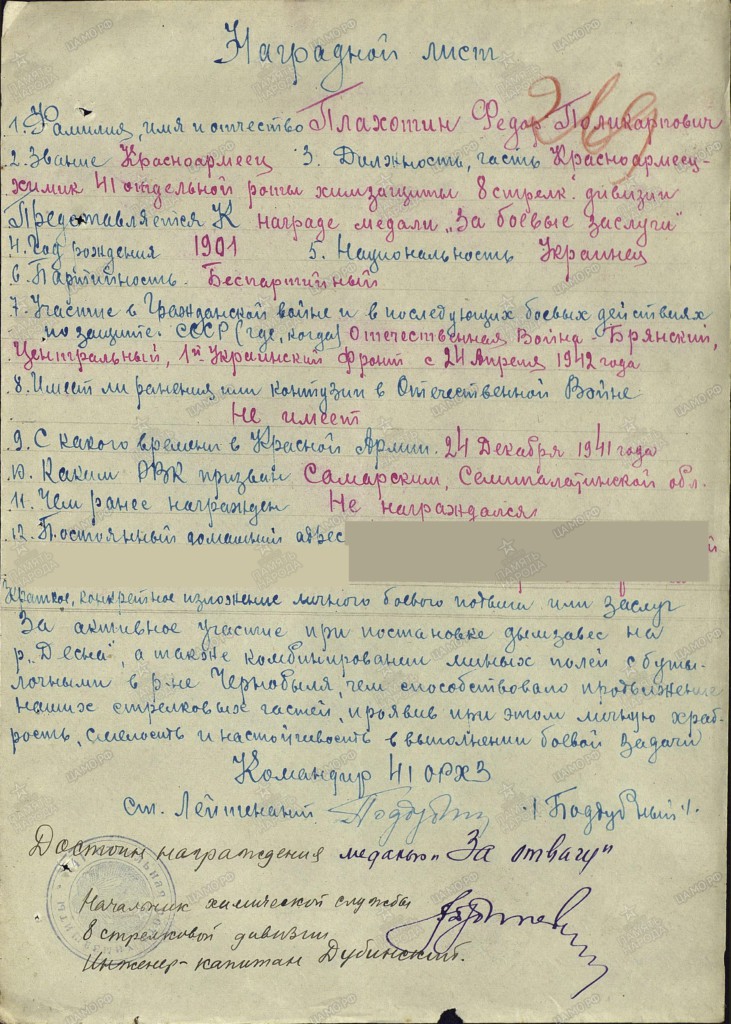 Наградной лист
269
1. Фамилия, имя и отчество Плахотин Федор Поликарпович
2. Звание Красноармеец 3. Должность, часть Красноармеец-
химик 41 отдельной роты химзащиты 8 стрелк. дивизии
Представляется к награде медали „За боевые заслуги"
4. Год рождения 1901 5. Национальность Украинец
6. Партийность Беспартийный
7. Участие в Гражданской войне и в последующих боевых действиях
по защите СССР (где, когда) Отечественная Война - Брянский,
Центральный, 1й Украинский фронт с 24 Апреля 1942 года
8. Имеет ли ранения или контузии в Отечественной Войне
Не имеет
9. С какого времени в Красной Армии. 24 Декабря 1941 года
10. Каким РВК призван Самарским, Семипалатинской обл.
11. Чем ранее награжден Не награждался
12. Постоянный домашний адрес
Краткое, конкретное изложение личного боевого подвига или заслуг
За активное участие при постановке дымзавес на
р. „Десна", а также комбинировании минных полей с буты-
лочными в р-не Чернобыля, чем способствовало продвижение
наших стрелковых частей, проявив при этом личную храб-
рость, смелость и настойчивость в выполнении боевой задачи
Командир 41 ОРХЗ
ст. Лейтенант /Поддубный/.
Достоин награждения медалью „За отвагу"
Начальник химической службы
8 стрелковой дивизии
Инженер-капитан Дубинский.